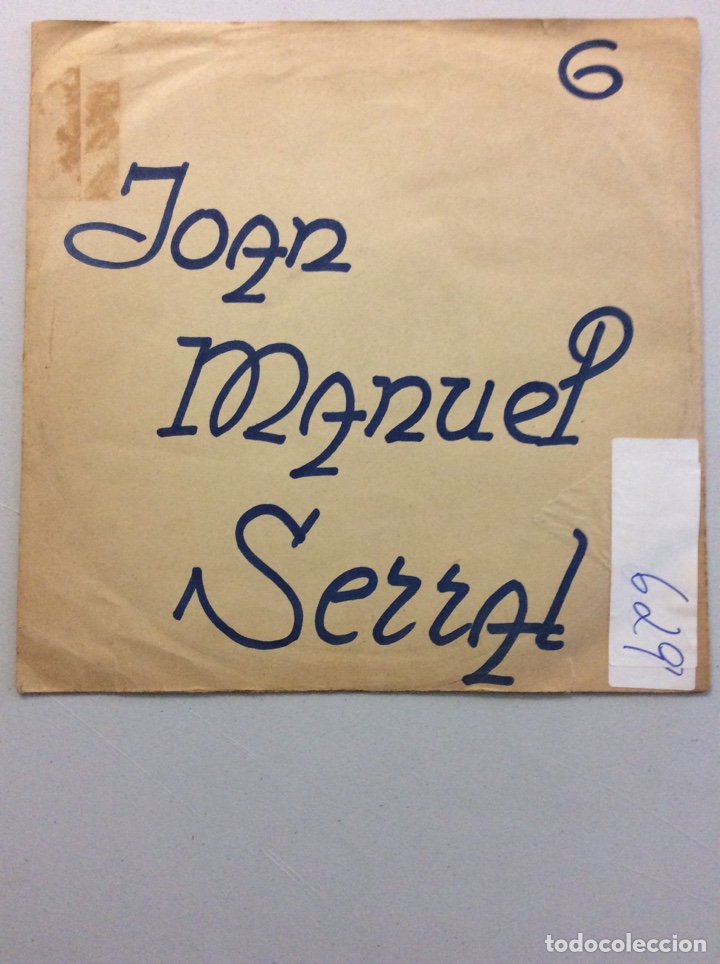 6
Joan
Manuel
Serrat
629
todocoleccion